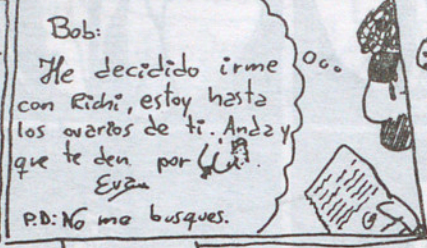 Bob:
He decidido irme
con Richi, estoy hasta
los ovarios de ti. Anda y
que te den por
Eva
P.D: No me busques.